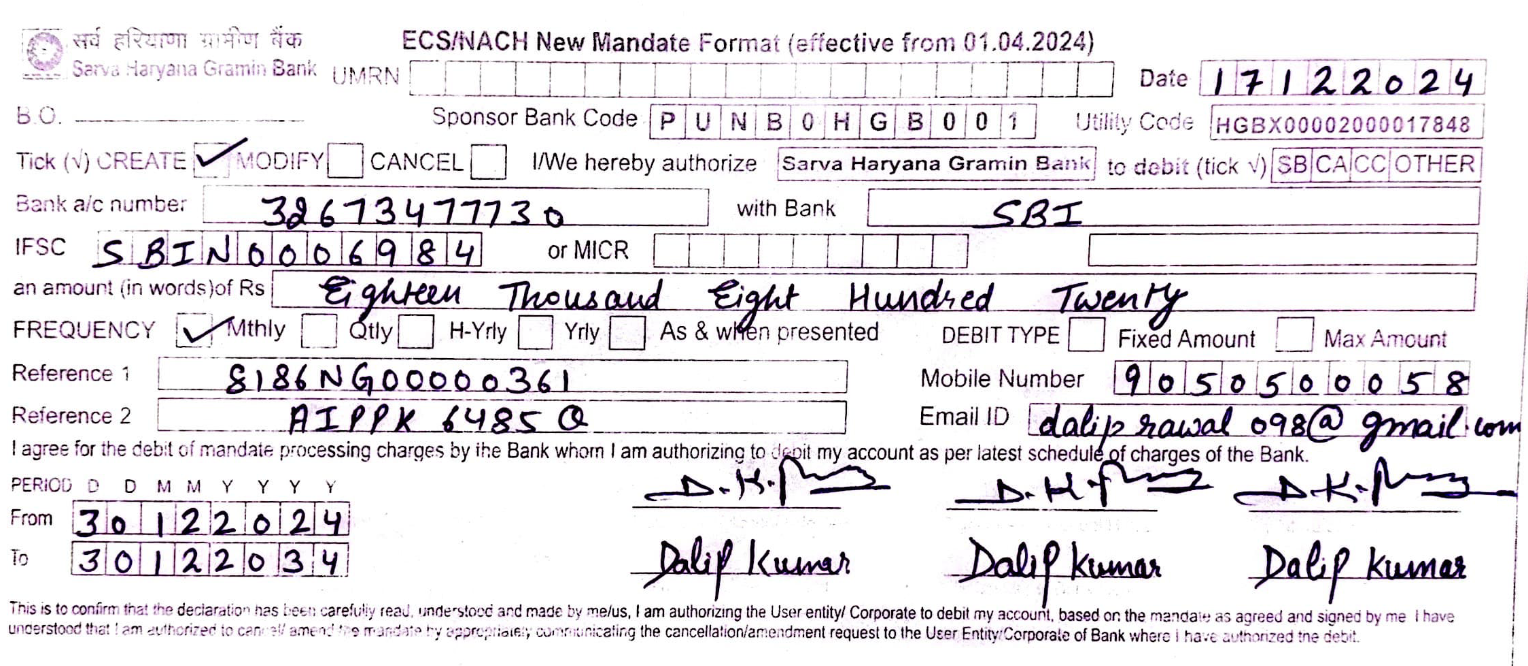 सर्व हरियाणा ग्रामीण बैंक
Sarva Haryana Gramin Bank
ECS/NACH New Mandate Format (effective from 01.04.2024)
UMRN Date 17122024
B.O. Sponsor Bank Code PUNB0HGB001 Utility Code HGBX00002000017848
Tick (√) CREATE ✓ MODIFY CANCEL I/We hereby authorize Sarva Haryana Gramin Bank to debit (tick √) SB CA CC OTHER
Bank a/c number 32673477730 with Bank SBI
IFSC SBIN0006984 or MICR
an amount (in words)of Rs Eighteen Thousand Eight Hundred Twenty
FREQUENCY ✓ Mthly Qtly H-Yrly Yrly As & when presented DEBIT TYPE Fixed Amount Max Amount
Reference 1 8186NG00000361 Mobile Number 9050500058
Reference 2 AIPPK 6485 Q Email ID daliprawal098@gmail.com
I agree for the debit of mandate processing charges by the Bank whom I am authorizing to debit my account as per latest schedule of charges of the Bank.
PERIOD D D M M Y Y Y Y
From 30122024
To 30122034
Dalip Kumar Dalip Kumar Dalip Kumar
This is to confirm that the declaration has been carefully read, understood and made by me/us, I am authorizing the User entity/ Corporate to debit my account, based on the mandate as agreed and signed by me I have
understood that I am authorized to cancel/ amend the mandate by appropriately communicating the cancellation/amendment request to the User Entity/Corporate of Bank where i have authorized the debit.